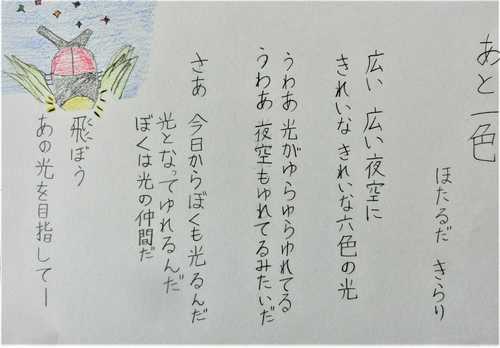 あと一色
ほたるだ きらり
広い 広い夜空に
きれいな きれいな六色の光
うわあ 光がゆらゆらゆれてる
うわあ 夜空もゆれてるみたいだ
さあ 今日からぼくも光るんだ
光となってゆれるんだ
ぼくは光の仲間だ
飛ぼう
あの光を目指してー